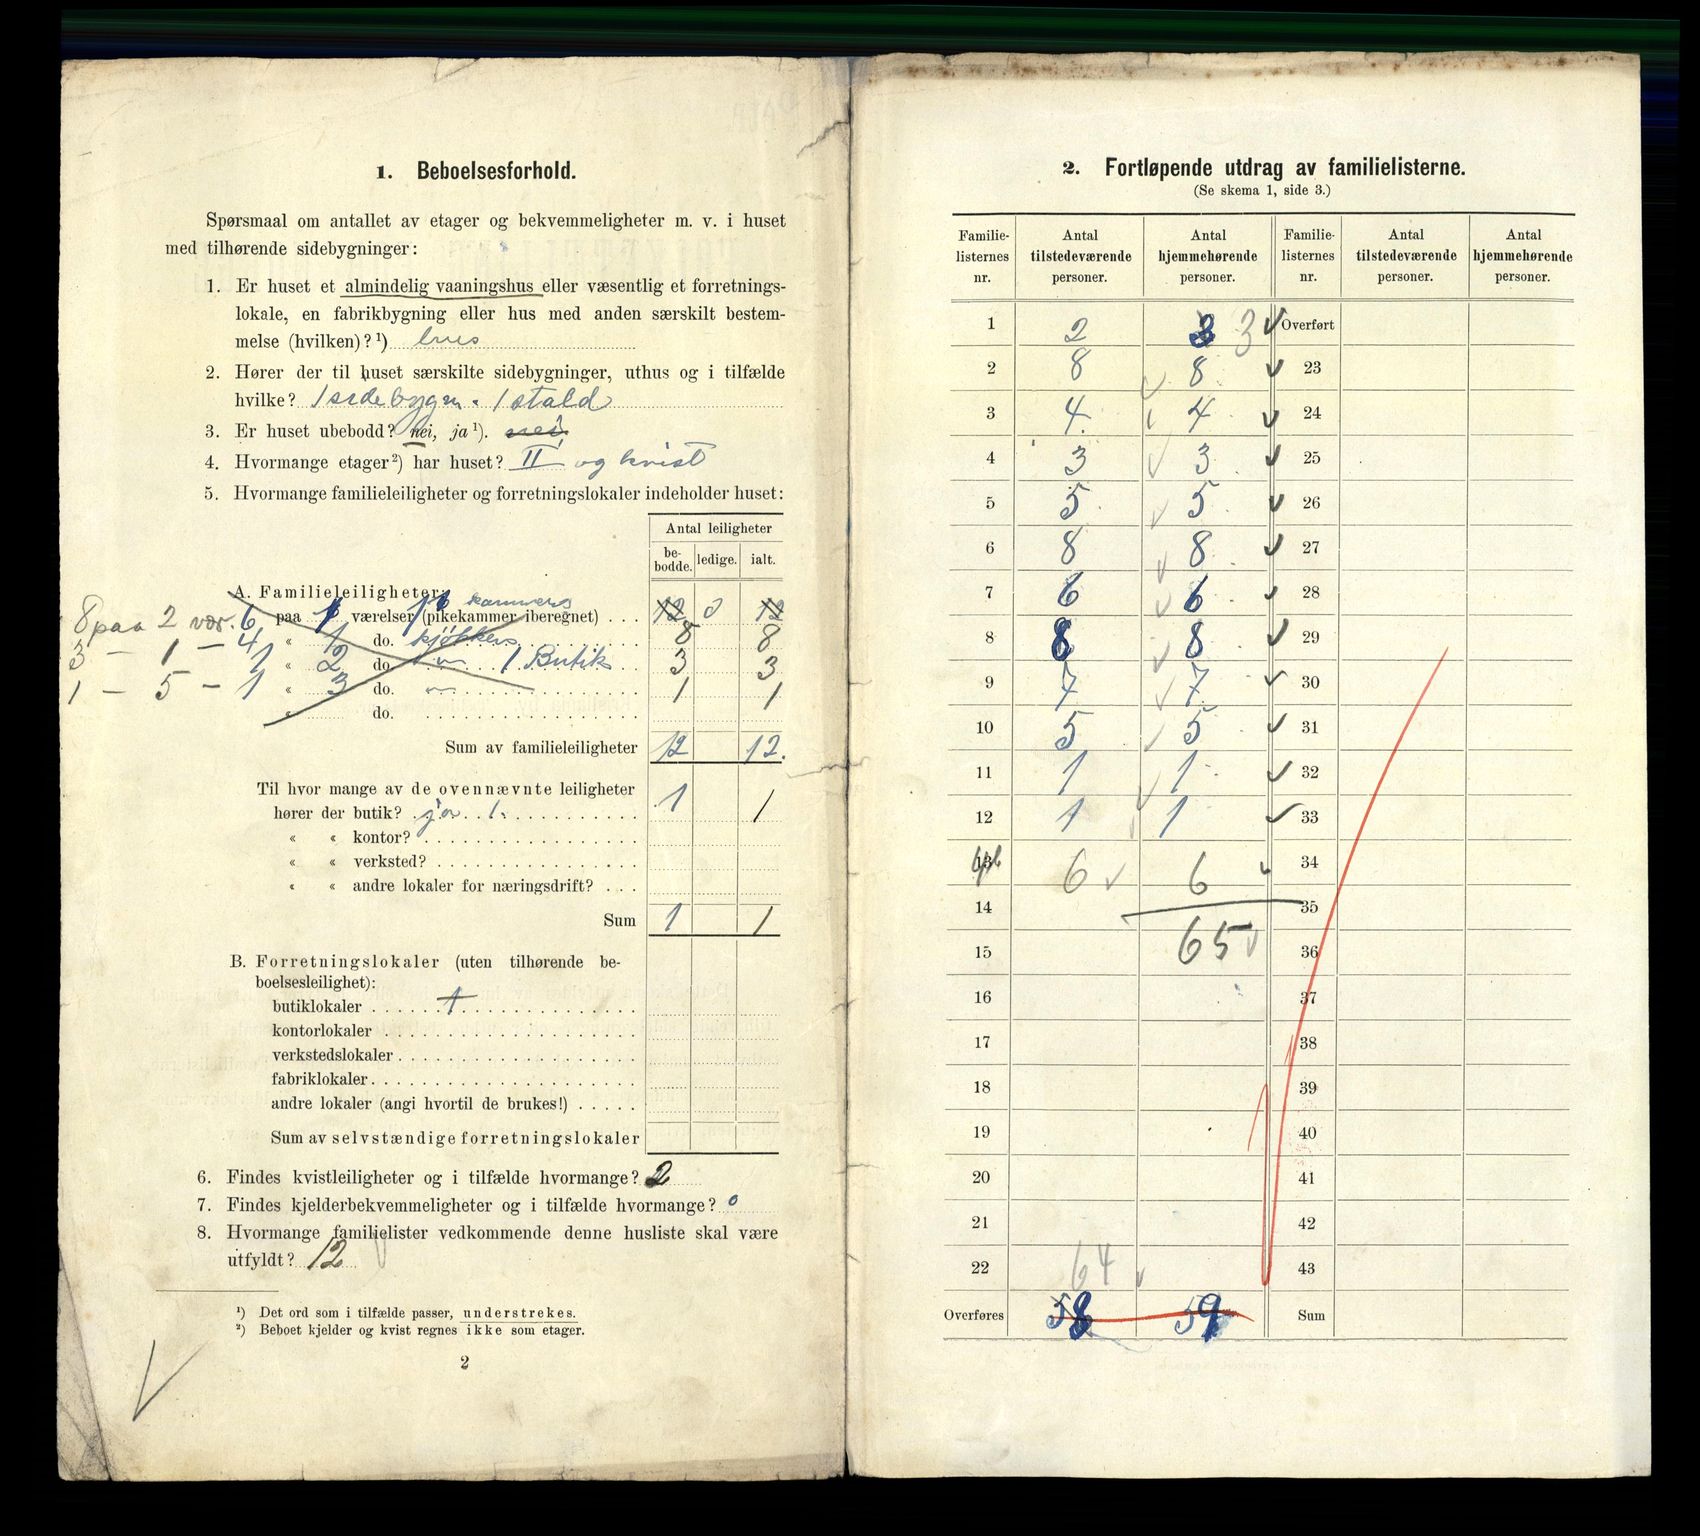 1. Beboelsesforhold.
Spørsmaal om antallet av etager og bekvemmeligheter m. v. i huset
med tilhørende sidebygninger:
1. Er huset et almindelig vaaningshus eller væsentlig et forretnings-
lokale, en fabrikbygning eller hus med anden særskilt bestem-
melse (hvilken)?¹)
2. Hører der til huset særskilte sidebygninger, uthus og i tilfælde
hvilke? 1 sidebygn. 1 stald
3. Er huset ubebodd? nei, ja¹). nei
4. Hvormange etager²) har huset? II og kvist
5. Hvormange familieleiligheter og forretningslokaler indeholder huset:
Antal leiligheter
be-bodde. ledige. ialt.
A. Familieleiligheter: kammers
8 paa 2 vær. 6 paa 1 værelser (pikekammer iberegnet) . . . 12 0 12
3 – 1 – 4 " 1 do. kjøkken 8 8
1 " 2 do. " 1 Butik 3 3
1 – 5 – 1 " 3 do. " 1 1
" do.
Sum av familieleiligheter 12 12.
Til hvor mange av de ovennævnte leiligheter
hører der butik? ja 1. 1 1
« « kontor?
« « verksted?
« « andre lokaler for næringsdrift? . . .
Sum 1 1
B. Forretningslokaler (uten tilhørende be-
boelsesleilighet):
butiklokaler 1
kontorlokaler
verkstedslokaler
fabriklokaler
andre lokaler (angi hvortil de brukes!)
Sum av selvstændige forretningslokaler
6. Findes kvistleiligheter og i tilfælde hvormange? 2
7. Findes kjelderbekvemmeligheter og i tilfælde hvormange? 0
8. Hvormange familielister vedkommende denne husliste skal være
utfyldt? 12
¹) Det ord som i tilfælde passer, understrekes.
²) Beboet kjelder og kvist regnes ikke som etager.
2
2. Fortløpende utdrag av familielisterne.
(Se skema 1, side 3.)
Familie- Antal Antal Familie- Antal Antal
listernes tilstedeværende hjemmehørende listernes tilstedeværende hjemmehørende
nr. personer. personer. nr. personer. personer.
1 2 3 3 Overført
2 8 8 23
3 4 4 24
4 3 3 25
5 5 5 26
6 8 8 27
7 6 6 28
8 8 8 29
9 7 7 30
10 5 5 31
11 1 1 32
12 1 1 33
13 6 6 34
14 35
15 65 36
16 37
17 38
18 39
19 40
20 41
21 42
22 64 43
Overføres 58 59 Sum